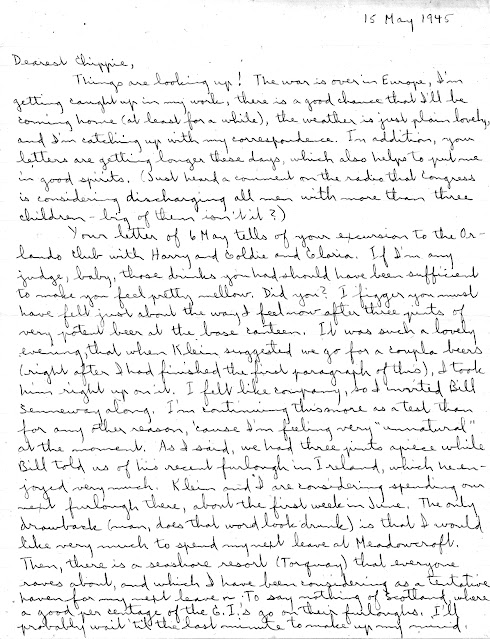 15 May 1945
Dearest Chippie,
Things are looking up! The war is over in Europe, I'm
getting caught up in my work, there is a good chance that I'll be
coming home (at least for a while), the weather is just plain lovely,
and I'm catching up with my correspondence. In addition, your
letters are getting longer these days, which also helps to put me
in good spirits. (Just heard a comment on the radio that Congress
is considering discharging all men with more than three
children - big of them isn't it?)
Your letter of 6 May tells of your excursion to the Or-
lando Club with Harry and Goldie and Gloria. If I'm any
judge, baby, those drinks you had should have been sufficient
to make you feel pretty mellow. Did you? I figger you must
have felt just about the way I feel now after three pints of
very potent beer at the base canteen. It was such a lovely
evening, that when Klein suggested we go for a coupla beers
(right after I had finished the first paragraph of this), I took
him right up on it. I felt like company, so I invited Bill
Senneway along. I'm continuing this more as a test than
for any other reason, 'cause I'm feeling very "unnatural"
at the moment. As I said, we had three pints apiece while
Bill told us of his recent furlough in Ireland, which he en-
joyed very much. Klein and I are considering spending our
next furlough there, about the first week in June. The only
drawback (man, does that word look drunk) is that I would
like very much to spend my next leave at Meadowcroft.
Then, there is a seashore resort (Torquay) that everyone
raves about, and which I have been considering as a tentative
haven for my next leave. To say nothing of Scotland, where
a good percentage of the G.I.'s go on their furloughs. I'll
probably wait 'til the last minute to make up my mind.